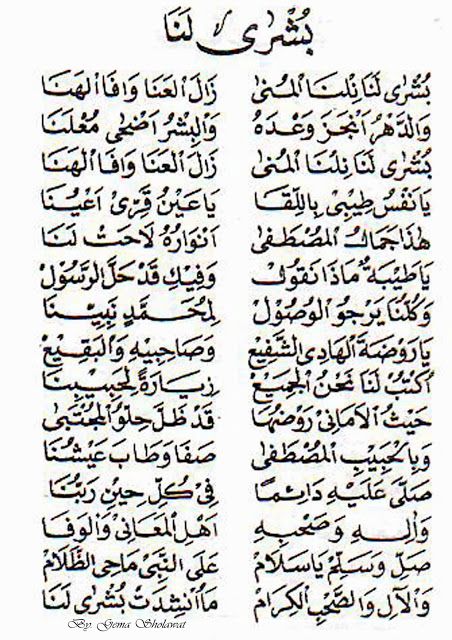 بُشْرٰى لَنَا
بُشْرٰى لَنَا نِلْنَا الْمُنٰى زَالَ الْعَنَا وَافَا الْهَنَا
وَالدَّهْرُ اَنْجَزَ وَعْدَهُ وَالْبِشْرُ اَضْحٰى مُعْلَنَا
بُشْرٰى لَنَا نِلْنَا الْمُنٰى زَالَ الْعَنَا وَافَا الْهَنَا
يَانَفْسُ طِيْبِىْ بِاللِّقَا يَاعَيْنُ قَرِّىْ اَعْيُنَا
هٰذَا جَمَالُ الْمُصْطَفٰى اَنْوَارُهُ لَاحَتْ لَنَا
يَاطَيْبَةُ مَاذَا نَقُوْلُ وَفِيْكِ قَدْ حَلَّ الرَّسُوْلْ
وَكُلُّنَا يَرْجُو الْوُصُوْلْ لِمُحَمَّدٍ نَبِيِّنَا
يَارَوْضَةَ الْهَادِى الشَّفِيْعْ وَصَاحِبَيْهِ وَالْبَقِيْعْ
اُكْتُبْ لَنَا نَحْنُ الْجَمِيْعْ زِيَارَةً لِحَبِيْبِنَا
حَيْثُ الْاَمَانِىْ رَوْضُهَا قَدْ ظَلَّ حُلْوَ الْمُجْتَنٰى
وَبِالْحَبِيْبِ الْمُصْطَفٰى صَفَا وَطَابَ عَيْشُنَا
صَلّٰى عَلَيْهِ دَائِمًا فِىْ كُلِّ حِيْنٍ رَبُّنَا
وَاٰلِهِ وَصَحْبِهِ اَهْلِ الْمَعَانِىْ وَالْوَفَا
صَلِّ وَسَلِّمْ يَاسَلَامْ عَلَى النَّبِىْ مَاحِى الظَّلَامْ
وَالْاٰلِ وَالصَّحْبِ الْكِرَامْ مَا اُنْشِدَتْ بُشْرٰى لَنَا
By. Gema Sholawat